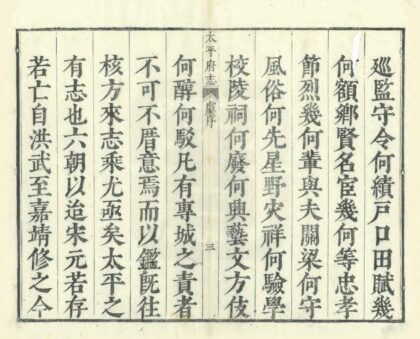 廵監守令何績戶口田賦幾
何額鄉賢名宦幾何等忠孝
節烈幾何輩與夫關梁何守
風俗何先星野灾祥何驗學
校陵祠何廢何興藝文方伎
太平府志 三
何醇何駁凡有專城之責者
不可不厝意焉而以鑑旣往
核方來志乘尤亟矣太平之
有志也六朝以迨宋元若存
若亡自洪武至嘉靖修之今